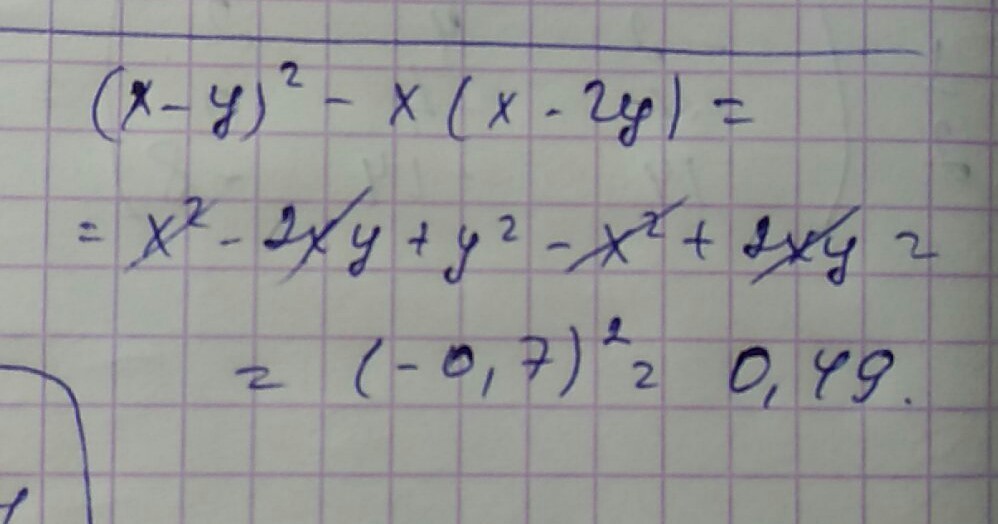 (x - y)² - x (x - 2y) =
= x² - 2xy + y² - x² + 2xy =
= (-0,7)² = 0,49.